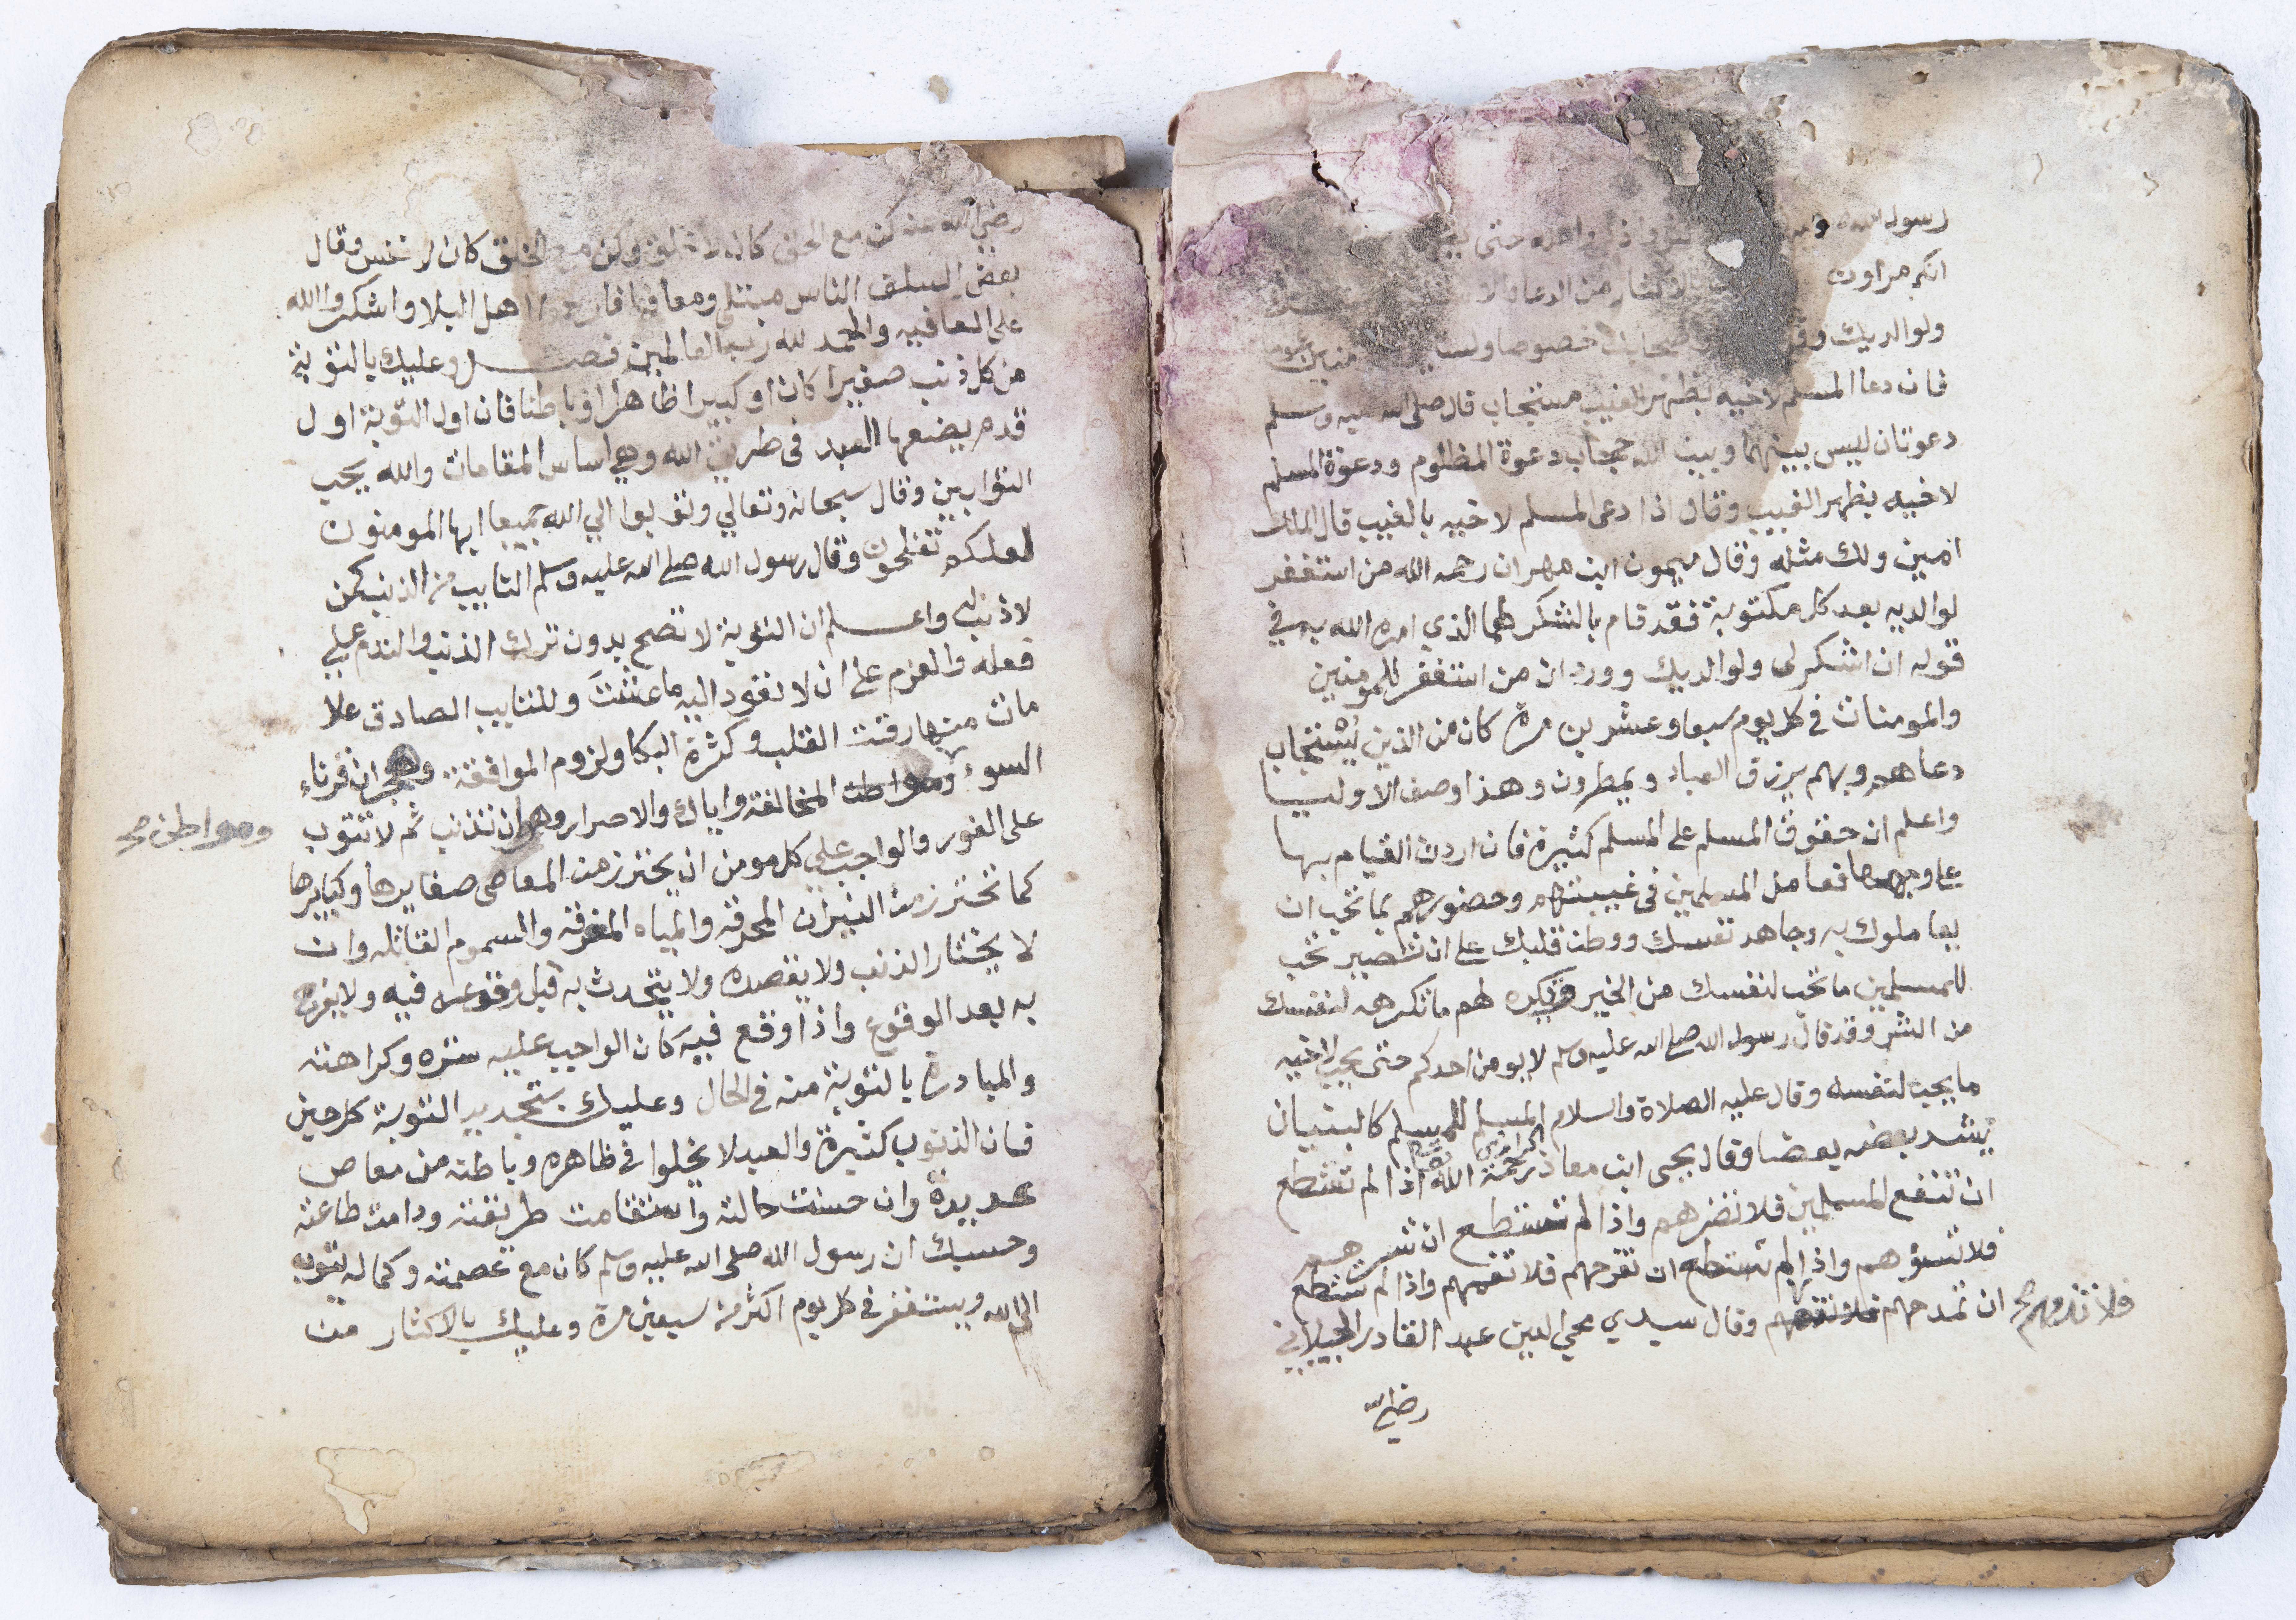 رسول الله
انكم مراون بالاكثار من الدعا والا
ولوالديك خصوصا
فان دعا المسلم لاخيه بظهر الغيب مستجاب قال صلى الله عليه وسلم
دعوتان ليس بينهما وبين الله حجاب دعوة المظلوم ودعوة المسلم
لاخيه بظهر الغيب وقال اذا دعى المسلم لاخيه بالغيب قال الملك
امين ولك مثله وقال ميمون ابن مهران رحمه الله من استغفر
لوالديه بعد كل مكتوبة فقد قام بالشكر لهما الذي امره الله به في
قوله ان اشكر لي ولوالديك وورد ان من استغفر للمومنين
والمومنات في كل يوم سبعا وعشرين مرة كان من الذين يُستجاب
دعاهم وبهم يرزق العباد ويمطرون وهذا وصف الاوليا
واعلم ان حقوق المسلم على المسلم كثيرة فان اردت القيام بها
على وجهها فعامل المسلمين في غيبتهم وحضورهم بما تحب ان
يعاملوك به وجاهد نفسك ووطن قلبك على ان تصير تحب
للمسلمين ما تحب لنفسك من الخير وتكره لهم ما تكرهه لنفسك
من الشر وقد قال رسول الله صلى الله عليه وسلم لا يومن احدكم حتى يحب لاخيه
ما يحب لنفسه وقال عليه الصلاة والسلام المسلم للمسلم كالبنيان
يشد بعضه بعضا وقال يحيى ابن معاذ الرازي رحمة الله اذا لم تستطع
ان تنفع المسلمين فلا تضرهم واذا لم تستطع ان تسرهم
فلا تسؤهم واذا لم تستطع ان تفرحهم فلا تغمهم واذا لم تستطع
ان تمدحهم وقال سيدي محي الدين عبد القادر الجيلاني
فلا تذمهم صح
رضي الله
رضي الله عنه كن مع الحق كان لا خلق وكن مع الخلق كان لا نفس وقال
بعض السلف الناس مبتلى ومعافا فارحموا اهل البلا واشكروا الله
على العافيه والحمد لله رب العالمين فصل وعليك بالتوبة
من كل ذنب صغيرا كان او كبيرا ظاهرا او باطنا فان اول التوبة اول
قدم يضعها العبد في طريق الله وهي اساس المقامات والله يحب
التوابين وقال سبحانه وتعالي وتوبوا الي الله جميعا ايها المومنون
لعلكم تفلحون وقال رسول الله صلى الله عليه وسلم التايب من الذنب كمن
لا ذنب له واعلم ان التوبة لا تصح بدون ترك الذنب والندم على
فعله والعزم على ان لا تعود اليه ما عشت وللتايب الصادق علا
مات منها رقت القلب وكثرة البكا ولزوم الموافقة وهجران قرناء
السوء ومواطن المخالفة واياك والاصرار وهو ان تذنب ثم لا تتوب
ومواطن صح
على الفور والواجب على كل مومن ان يحترز من المعاصي صغايرها وكبايرها
كما تحترز من النيران المحرقة والمياه المغرقة والسموم القاتله وان
لا يختار الذنب ولا يقصده ولا يتحدث به قبل وقوعه فيه ولا يفرح
به بعد الوقوع واذا وقع فيه كان الواجب عليه ستره وكراهته
والمبادرة بالتوبة منه في الحال وعليك بتجديد التوبة كل حين
فان الذنوب كثيرة والعبد لا يخلوا في ظاهره وباطنه من معاص
عديدة وان حسنت حالته واستقامت طريقته ودامت طاعته
وحسبك ان رسول الله صلى الله عليه وسلم كان مع عصمته وكماله يتوب
الى الله ويستغفر في كل يوم اكثر من سبعين مرة وعليك بالاكثار من